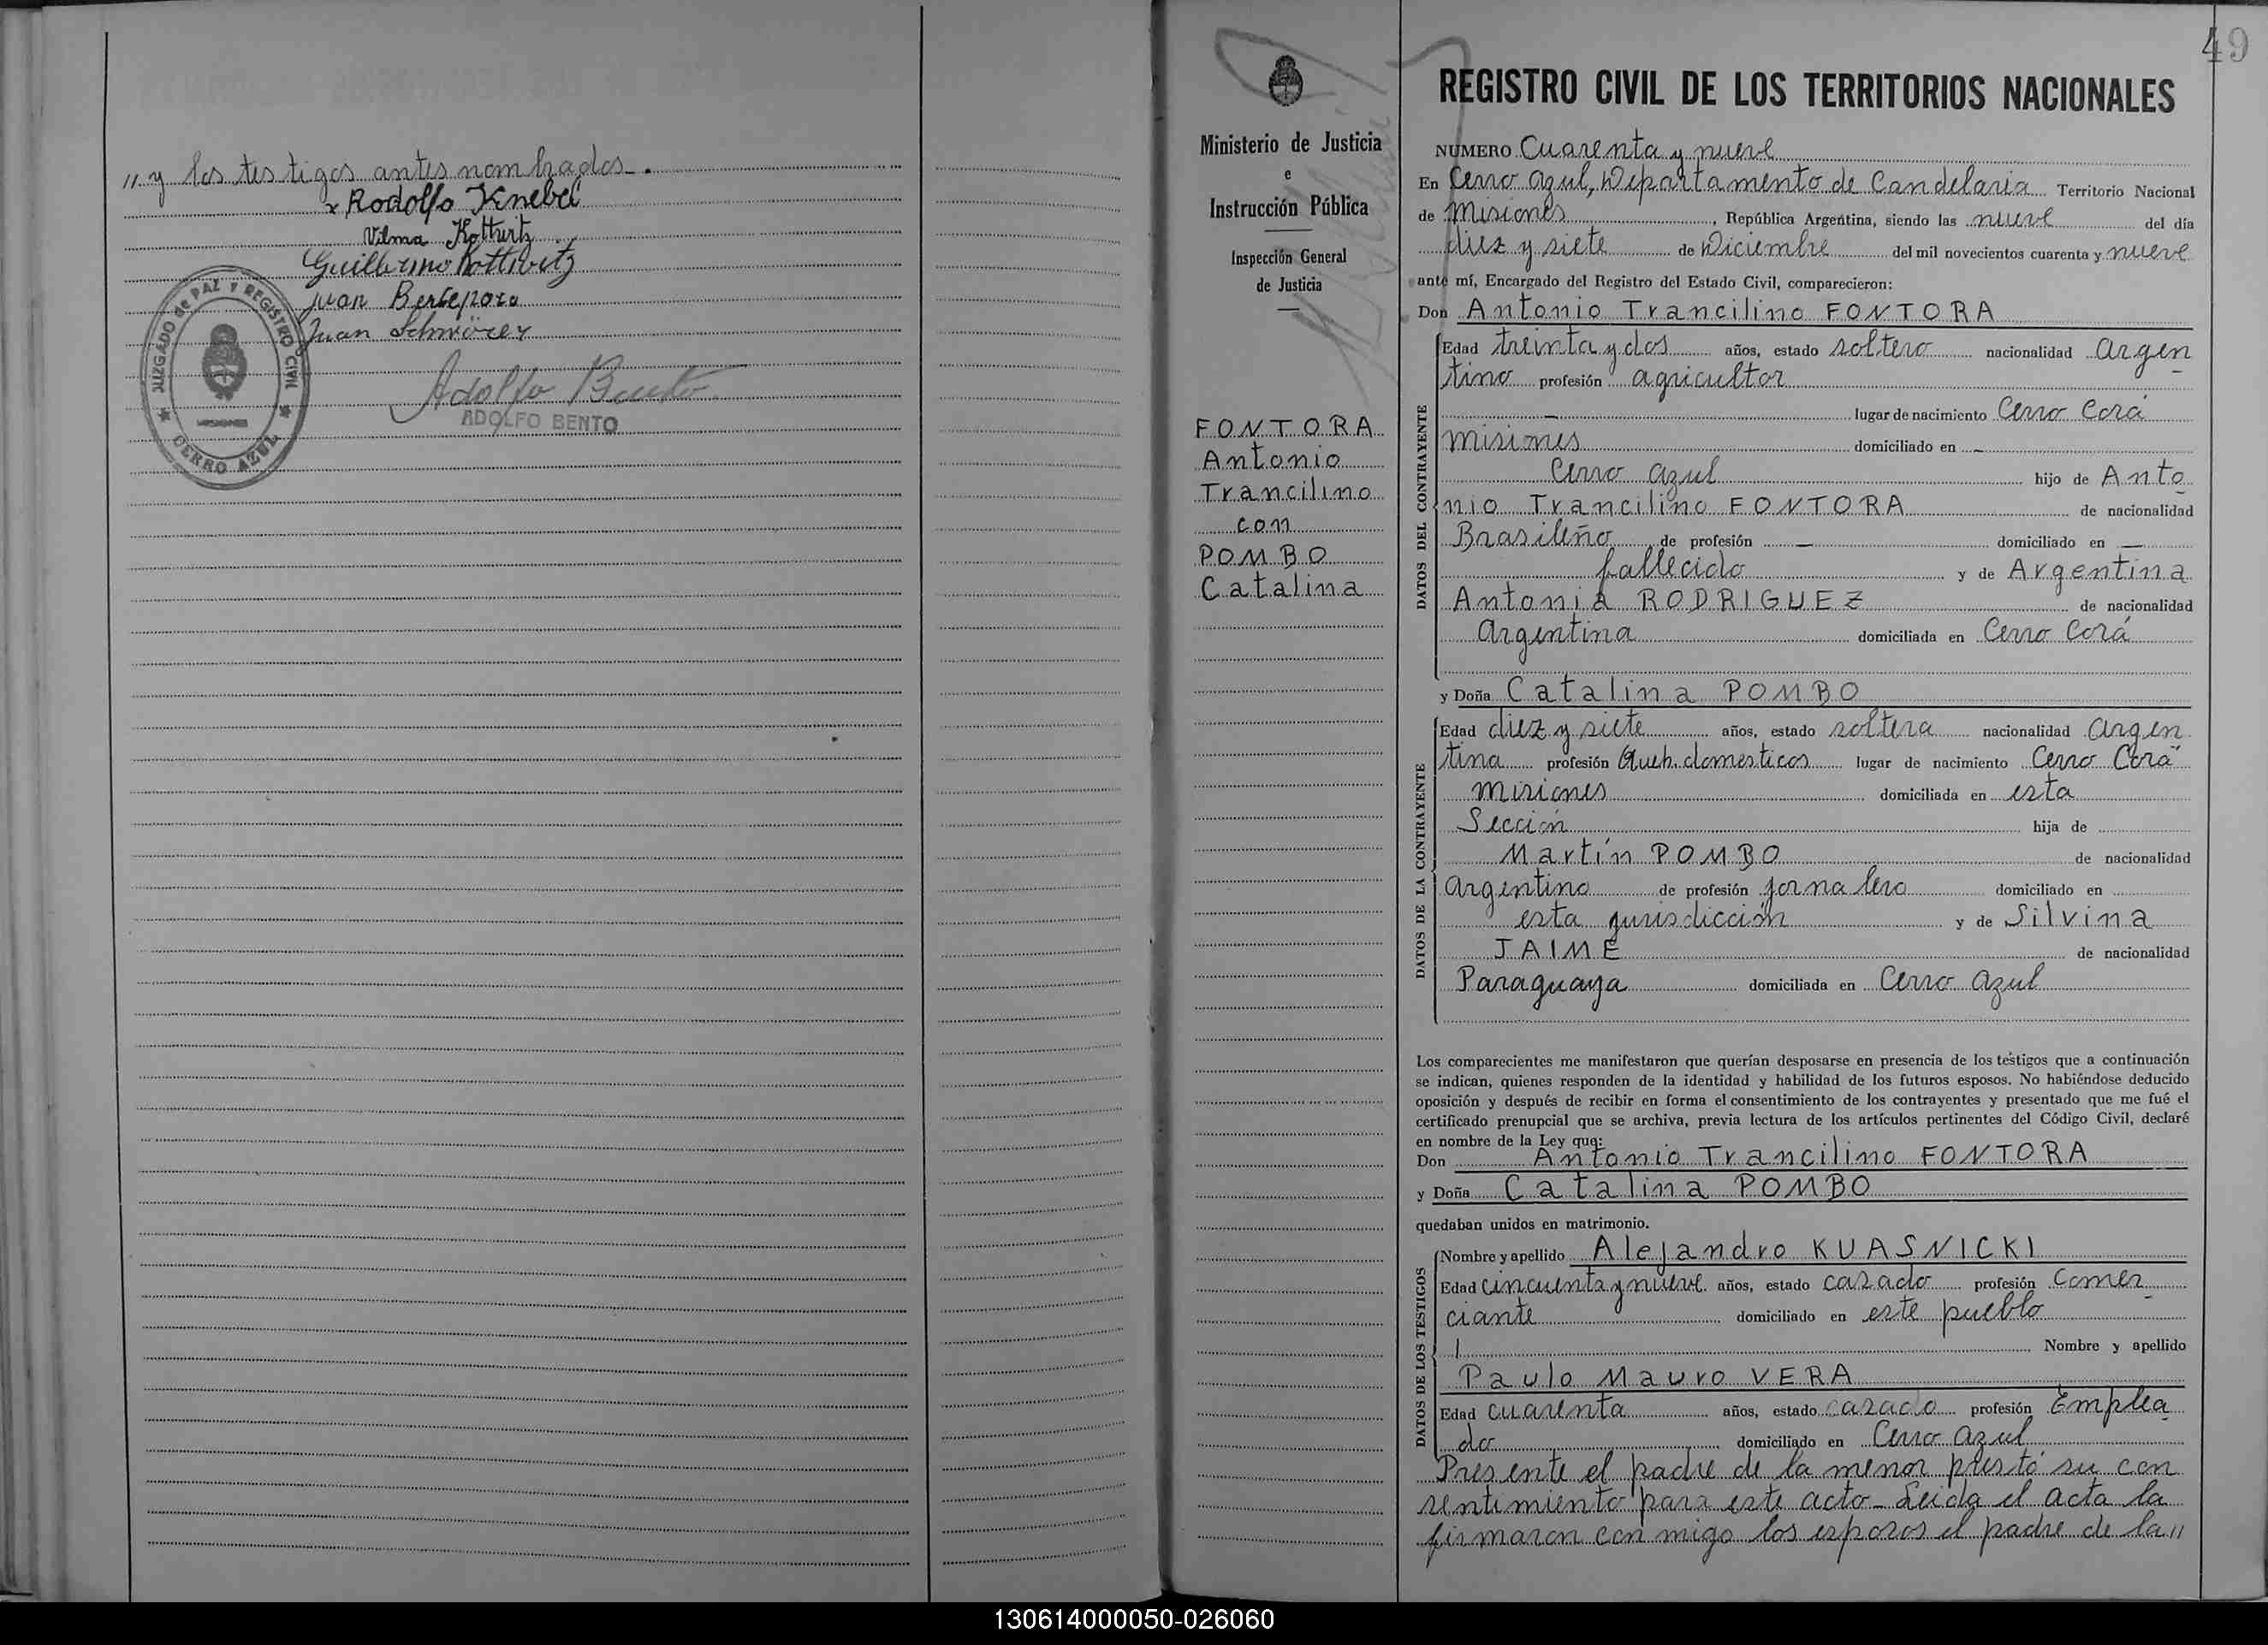 " y los testigos antes nombrados_.
x Rodolfo Knebel
Vilma Kottwitz
Guillermo Kottwitz
Juan Bereepozo
Juan Schwörer
Adolfo Bento
ADOLFO BENTO
JUZGADO DE PAZ Y REGISTRO CIVIL
MISIONES
CERRO AZUL
49
Ministerio de Justicia
e
Instrucción Pública
Inspección General
de Justicia
FONTORA
Antonio
Trancilino
con
POMBO
Catalina
REGISTRO CIVIL DE LOS TERRITORIOS NACIONALES
NÚMERO Cuarenta y nueve
En Cerro Azul, Departamento de Candelaria Territorio Nacional
de Misiones, República Argentina, siendo las nueve del día
diez y siete de Diciembre del mil novecientos cuarenta y nueve
ante mí, Encargado del Registro del Estado Civil, comparecieron:
Don Antonio Trancilino FONTORA
Edad treinta y dos años, estado soltero nacionalidad argen
tino profesión agricultor
— lugar de nacimiento Cerro Corá
Misiones domiciliado en —
Cerro Azul hijo de Anto
nio Trancilino FONTORA de nacionalidad
Brasileño de profesión — domiciliado en —
fallecido y de Argentina
Antonia RODRIGUEZ de nacionalidad
Argentina domiciliada en Cerro Corá
DATOS DEL CONTRAYENTE
y Doña Catalina POMBO
Edad diez y siete años, estado soltera nacionalidad Argen
tina profesión Queh. domesticos lugar de nacimiento Cerro Corá
Misiones domiciliada en esta
Sección hija de
Martín POMBO de nacionalidad
Argentino de profesión jornalero domiciliado en
esta jurisdicción y de Silvina
JAIME de nacionalidad
Paraguaya domiciliada en Cerro Azul
DATOS DE LA CONTRAYENTE
Los comparecientes me manifestaron que querían desposarse en presencia de los testigos que a continuación
se indican, quienes responden de la identidad y habilidad de los futuros esposos. No habiéndose deducido
oposición y después de recibir en forma el consentimiento de los contrayentes y presentado que me fué el
certificado prenupcial que se archiva, previa lectura de los artículos pertinentes del Código Civil, declaré
en nombre de la Ley que:
Don Antonio Trancilino FONTORA
y Doña Catalina POMBO
quedaban unidos en matrimonio.
Nombre y apellido Alejandro KUASNICKI
Edad cincuenta y nueve años, estado casado profesión Comer
ciante domiciliado en este pueblo
Nombre y apellido
Paulo Mauro VERA
Edad cuarenta años, estado casado profesión Emplea
do domiciliado en Cerro Azul
DATOS DE LOS TESTIGOS
Presente el padre de la menor prestó su con
sentimiento para este acto_ Leida el acta la
firmaron con migo los esposos el padre de la "
130614000050-026060